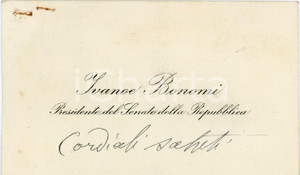 Ivanoe Bonomi
Presidente del Senato della Repubblica
Cordiali saluti